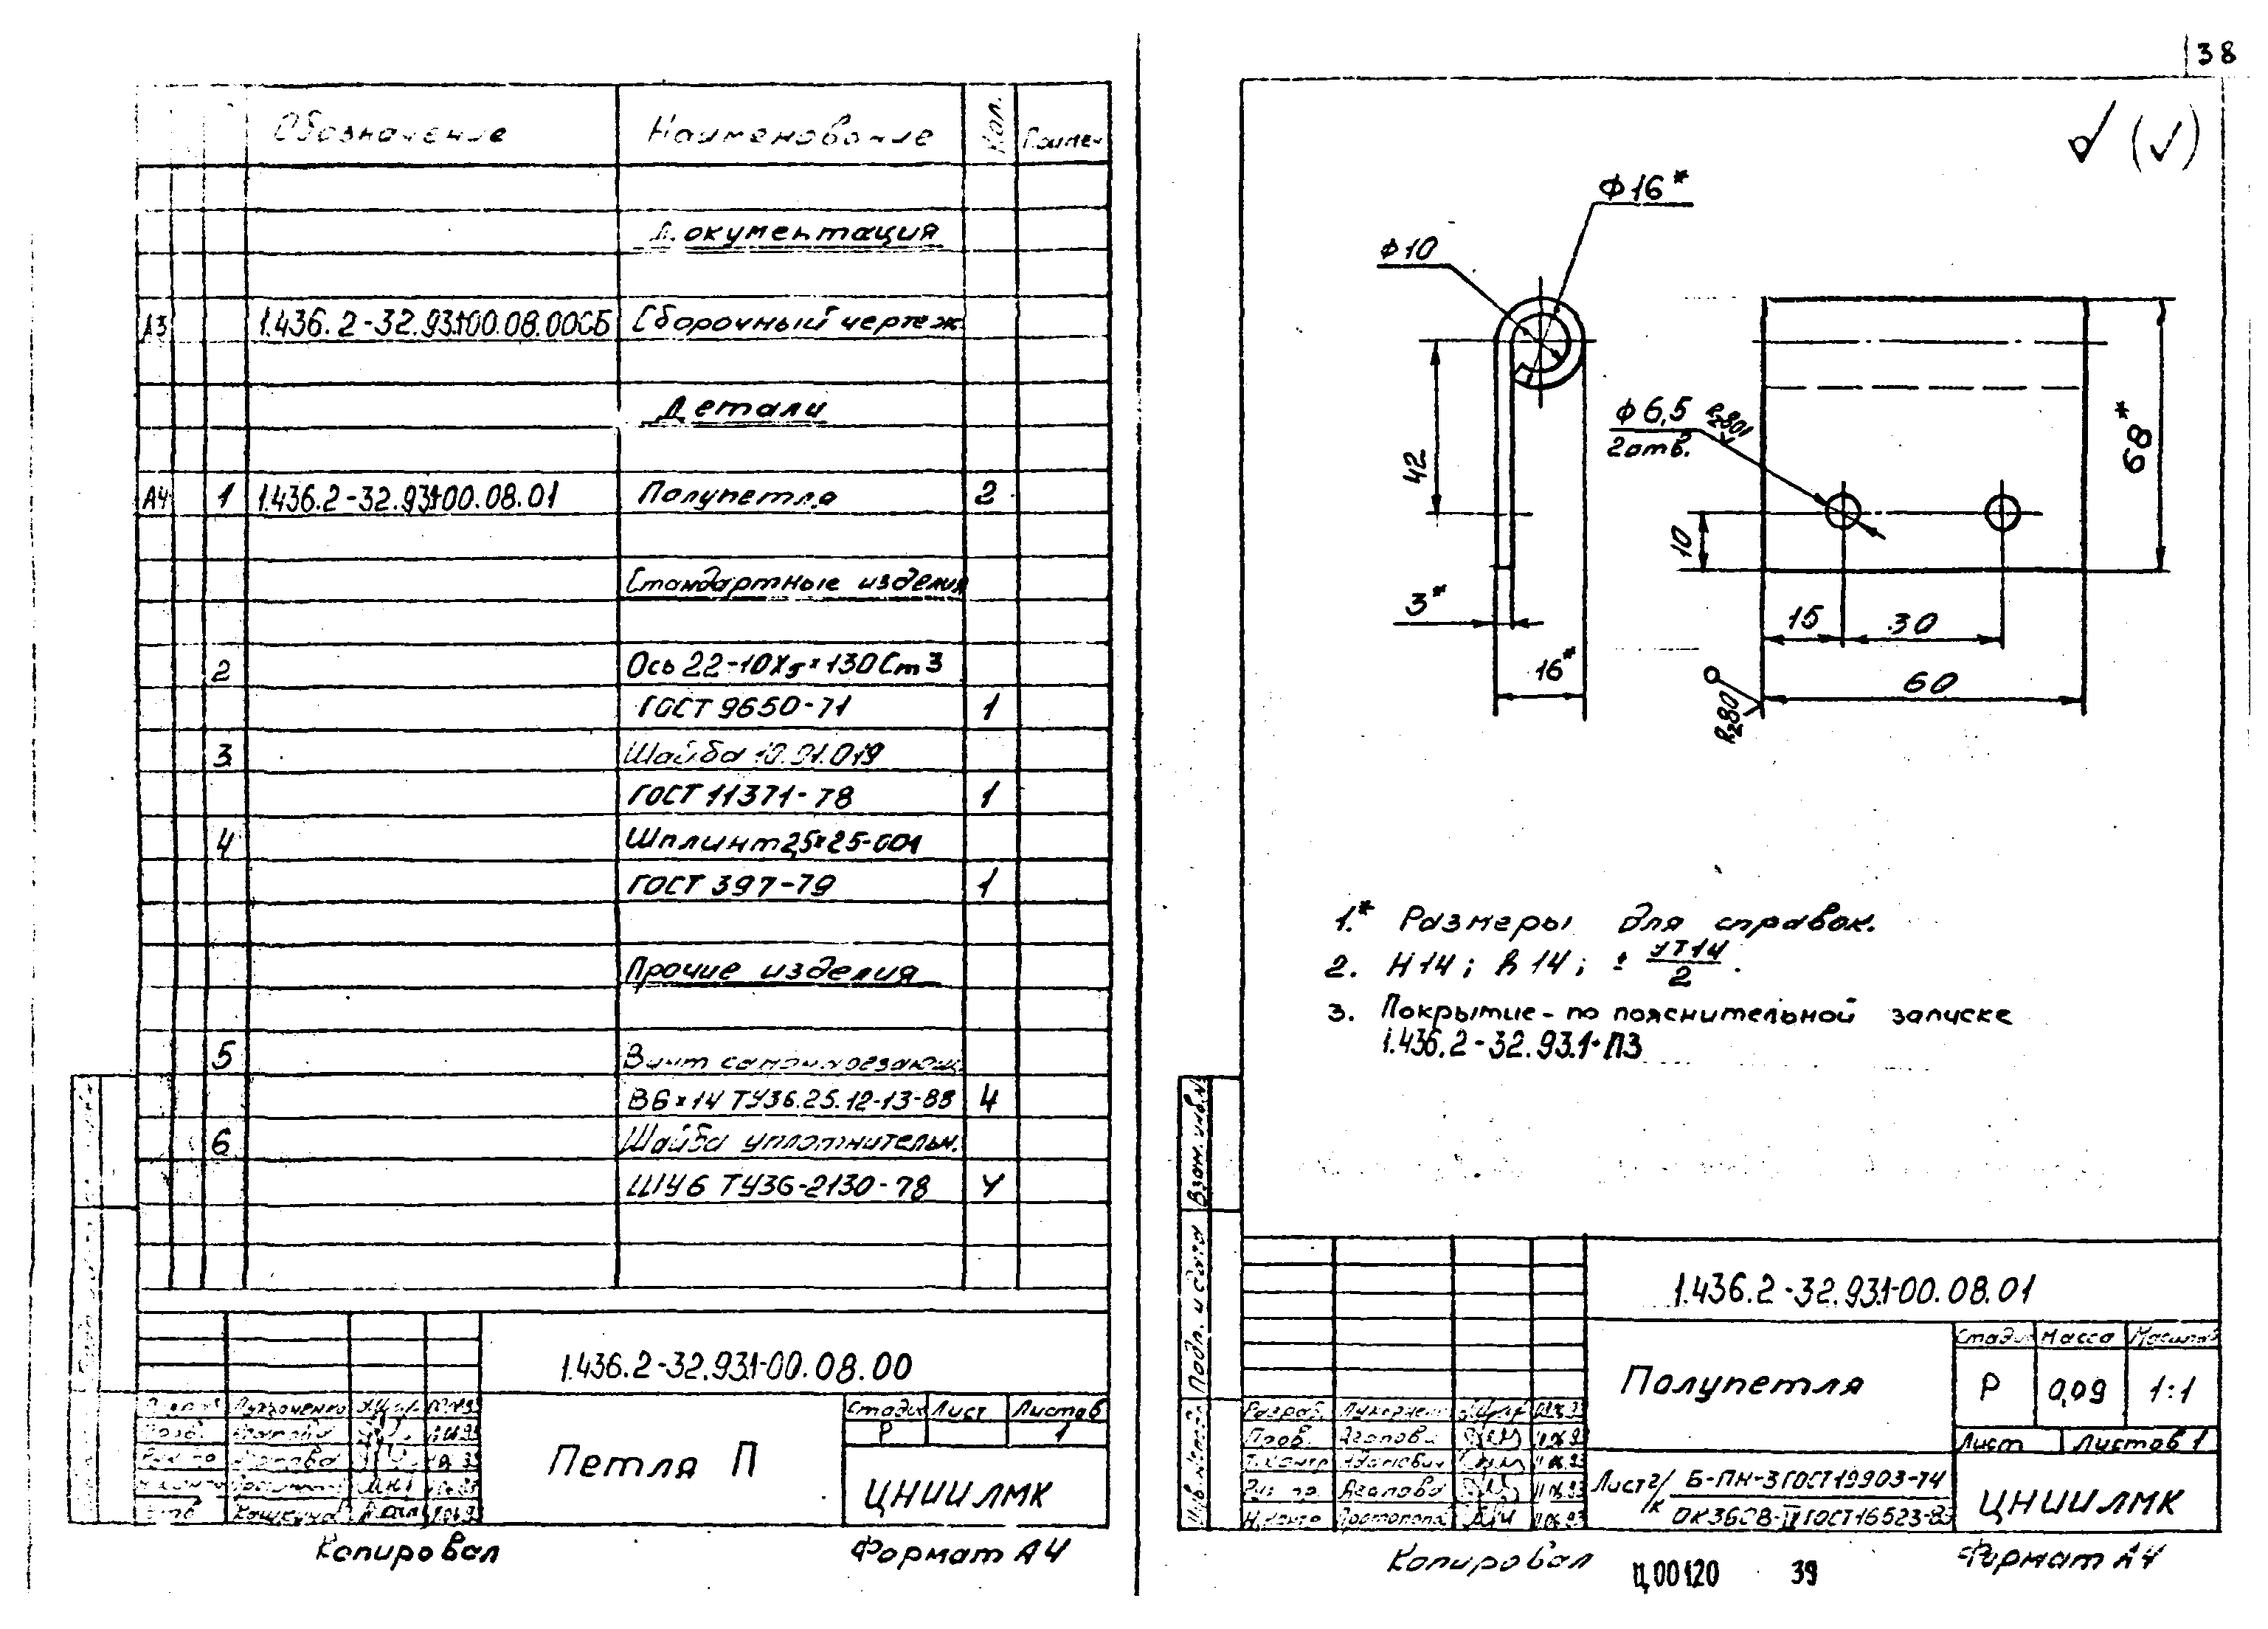 38
Обозначение Наименование Кол. Примеч
Документация
А3 1.436.2-32.93.1-00.08.00СБ Сборочный чертеж
Детали
А4 1 1.436.2-32.93.1-00.08.01 Полупетля 2
Стандартные изделия
2 Ось 22-10х5×130Ст3
ГОСТ 9650-71 1
3 Шайба 10.01.019
ГОСТ 11371-78 1
4 Шплинт 2,5×25-001
ГОСТ 397-79 1
Прочие изделия
5 Винт самонарезающ.
В6×14 ТУ36.25.12-13-88 4
6 Шайба уплотнительн.
ШУ6 ТУ36-2130-78 4
1.436.2-32.93.1-00.08.00
Петля П
Стадия Лист Листов
Р 1
ЦНИИЛМК
Копировал Формат А4
Ф16*
Ф10
42
3*
16*
Ф6,5 Rz80
2 отв.
10
68*
15 30
60
Rz80
1.* Размеры для справок.
2. H14; h14; ± IT14/2.
3. Покрытие - по пояснительной запуске
1.436.2-32.93.1-ПЗ
Взам. инв.№
Подп. и дата
1.436.2-32.93.1-00.08.01
Полупетля
Стадия Масса Масштаб
Р 0,09 1:1
Лист Листов 1
Разраб.
Пров. Агапова 11.06.93
Т.контр. 11.06.93
Агапова 11.06.93
Н.контр. 11.06.93
Лист г/к Б-ПН-3 ГОСТ 19903-74
ОК360В-IV ГОСТ 16523-89
ЦНИИЛМК
Копировал Формат А4
Ц00120 39